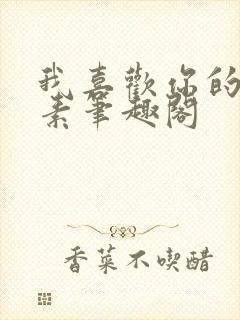 我喜歡你的
素筆趣閣
香菜不喫醋